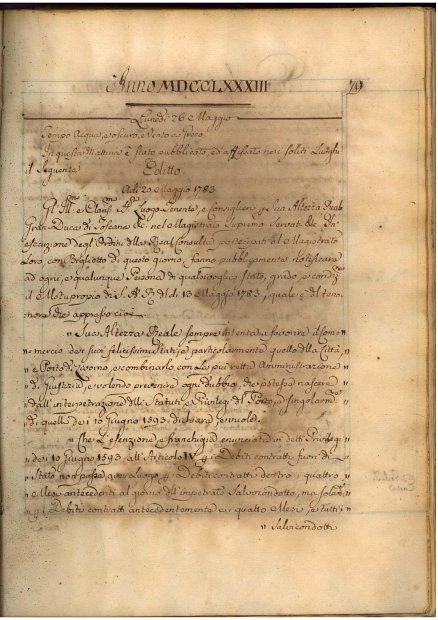 Anno MDCCLXXXIII 79
Lunedì 26 Maggio
Tempo Acqua, e oscuro, e Vento a Greco
In questa Mattina è stato pubblicato, ed affissato nei soliti Luoghi
il Seguente Editto
Adì 20 Maggio 1783
Gl' Ill.mi e Clariss.mi SS.ri Luogo Tenente, e Consiglieri p Sua Altezza Reale
Gran Duca di Toscana &c. nel Magistrato Supremo Servat. &c. In
esecuzione degl' Ordini della Real Consulta partecipati al Magistrato
Loro con Biglietto di questo giorno, fanno pubblicamente notificare
ad ogni, e qualunque Persona di qualsivoglia stato, grado, e condiz.e
il Motuproprio di S. A. R. del dì 13 Maggio 1783, quale è del teno-
re che appresso cioè
" Sua Altezza Reale sempre intenta a favorire il Com- "
" mercio de' suoi felicissimi Stati, e particolarmente quello della Città, "
" e Porto di Livorno, e combinarlo con la più retta Amministrazione "
" di Giustizia, e volendo prevenire ogni dubbio, che potesse nascere "
" dall' interpetrazione delli Statuti, e Privilegi del Porto, e singolarm.te "
" di quelle de' 10 Giugno 1593, dichiara
" Che L'esenzione, e franchigia enunciata in detti Privilegi "
" dei 10 Giugno 1593 all' Articolo IV p i Debiti contratti fuori di "
" Stato non possa aver Luogo p i Debiti contratti dentro i quattro "
" Mesi antecedenti al giorno dell' impetrato Salvocondotto, ma solam.te "
" p i Debiti contratti antecedentemente ai quattro Mesi, e tutti "
" Salvicondotti